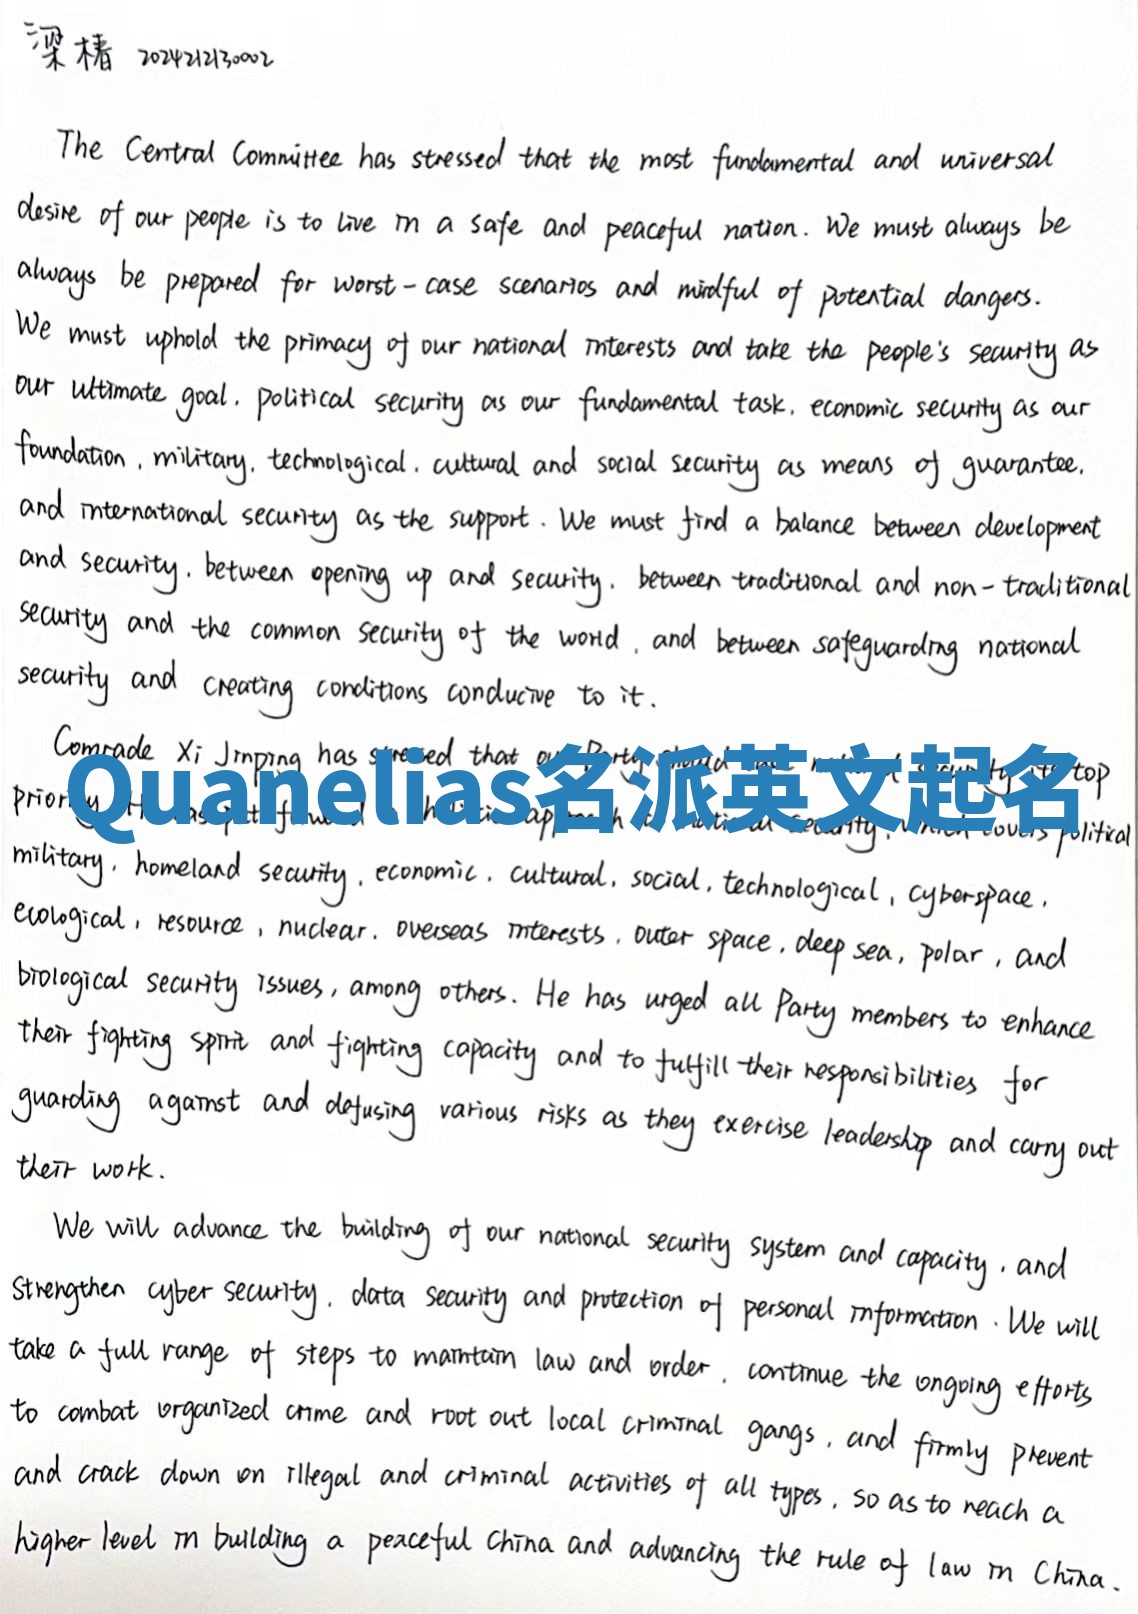 梁椿 2024212130002
The Central Committee has stressed that the most fundamental and universal
desire of our people is to live in a safe and peaceful nation. We must always be
always be prepared for worst-case scenarios and mindful of potential dangers.
We must uphold the primacy of our national interests and take the people's security as
our ultimate goal, political security as our fundamental task, economic security as our
foundation, military, technological, cultural and social security as means of guarantee,
and international security as the support. We must find a balance between development
and security, between opening up and security, between traditional and non-traditional
security and the common security of the world, and between safeguarding national
security and creating conditions conducive to it.
Comrade Xi Jinping has stressed that our Party should top
Quanelias名派英文起名
priority political
military, homeland security, economic, cultural, social, technological, cyberspace,
ecological, resource, nuclear, overseas interests, outer space, deep sea, polar, and
biological security issues, among others. He has urged all Party members to enhance
their fighting spirit and fighting capacity and to fulfill their responsibilities for
guarding against and defusing various risks as they exercise leadership and carry out
their work.
We will advance the building of our national security system and capacity, and
strengthen cyber security, data security and protection of personal information. We will
take a full range of steps to maintain law and order, continue the ongoing efforts
to combat organized crime and root out local criminal gangs, and firmly prevent
and crack down on illegal and criminal activities of all types, so as to reach a
higher level in building a peaceful China and advancing the rule of law in China.